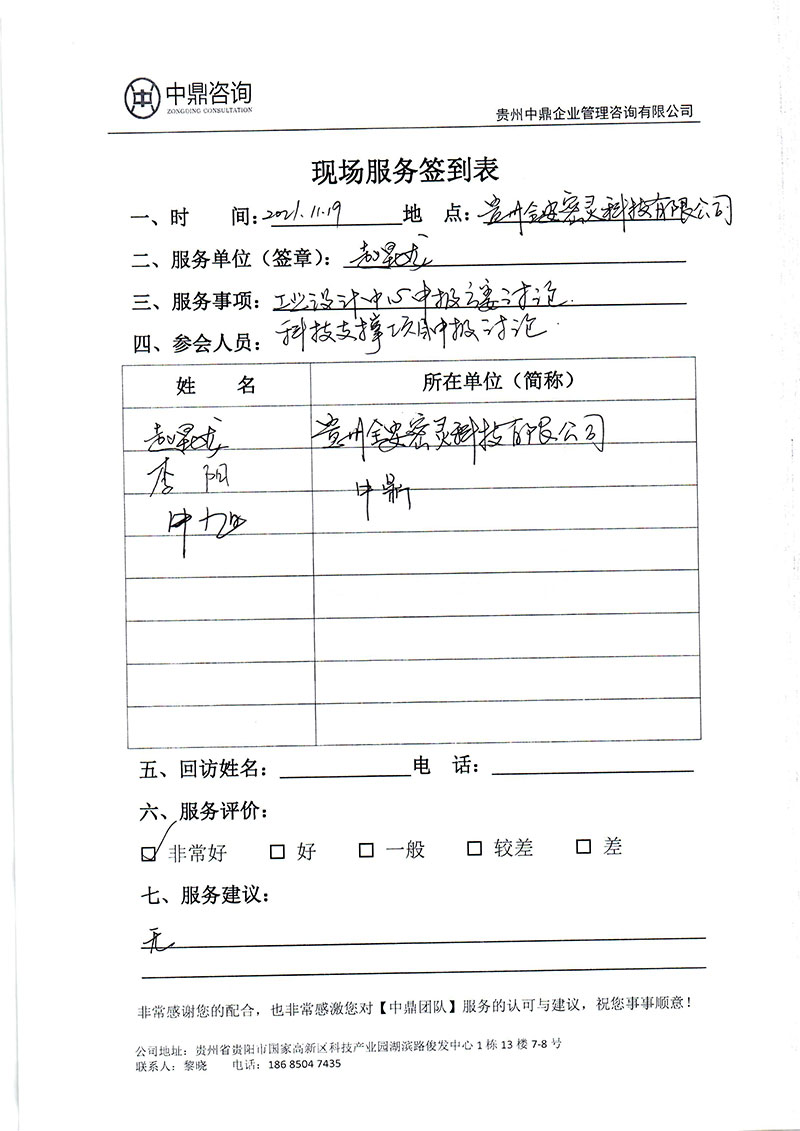 中鼎咨询
ZONGDING CONSULTATION
贵州中鼎企业管理咨询有限公司
现场服务签到表
一、时 间：2021.11.19 地 点：贵州金安密灵科技有限公司
二、服务单位（签章）：赵星龙
三、服务事项：工业设计中心申报方案讨论.
科技支撑项目申报讨论.
四、参会人员：
姓 名 所在单位（简称）
赵星龙 贵州金安密灵科技有限公司
李阳 中鼎
五、回访姓名： 电 话：
六、服务评价：
☑ 非常好 □ 好 □ 一般 □ 较差 □ 差
七、服务建议：
无
非常感谢您的配合，也非常感激您对【中鼎团队】服务的认可与建议，祝您事事顺意！
公司地址：贵州省贵阳市国家高新区科技产业园湖滨路俊发中心1栋13楼7-8号
联系人：黎晓 电话：186 8504 7435